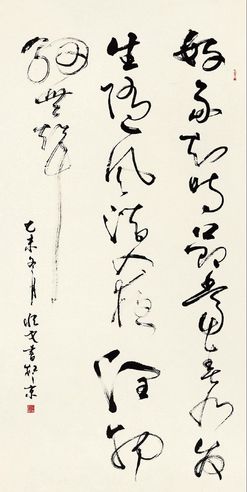 好雨知時節當春乃發
生隨風潛入夜潤物
細無聲
乙未冬月書於京